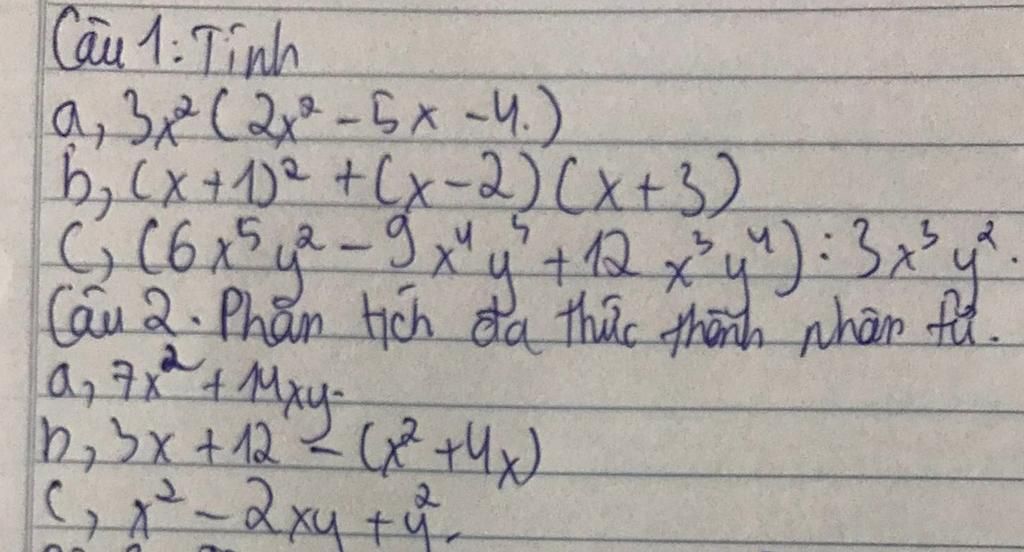 Câu 1: Tính
a, 3x² (2x² - 5x - 4.)
b, (x + 1)² + (x - 2) (x + 3)
c, (6x⁵y² - 9x⁴y³ + 12 x³y⁴) : 3x³y².
Câu 2. Phân tích đa thức thành nhân tử.
a, 7x² + 14xy.
b, 3x + 12 - (x² + 4x)
c, x² - 2xy + y².